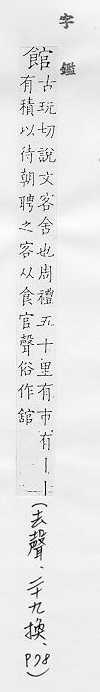 字鑑
館
古玩切說文客舍也周禮五十里有市市有丨丨
有積以待朝聘之客从食官聲俗作舘
(去聲、二十九換、P78)